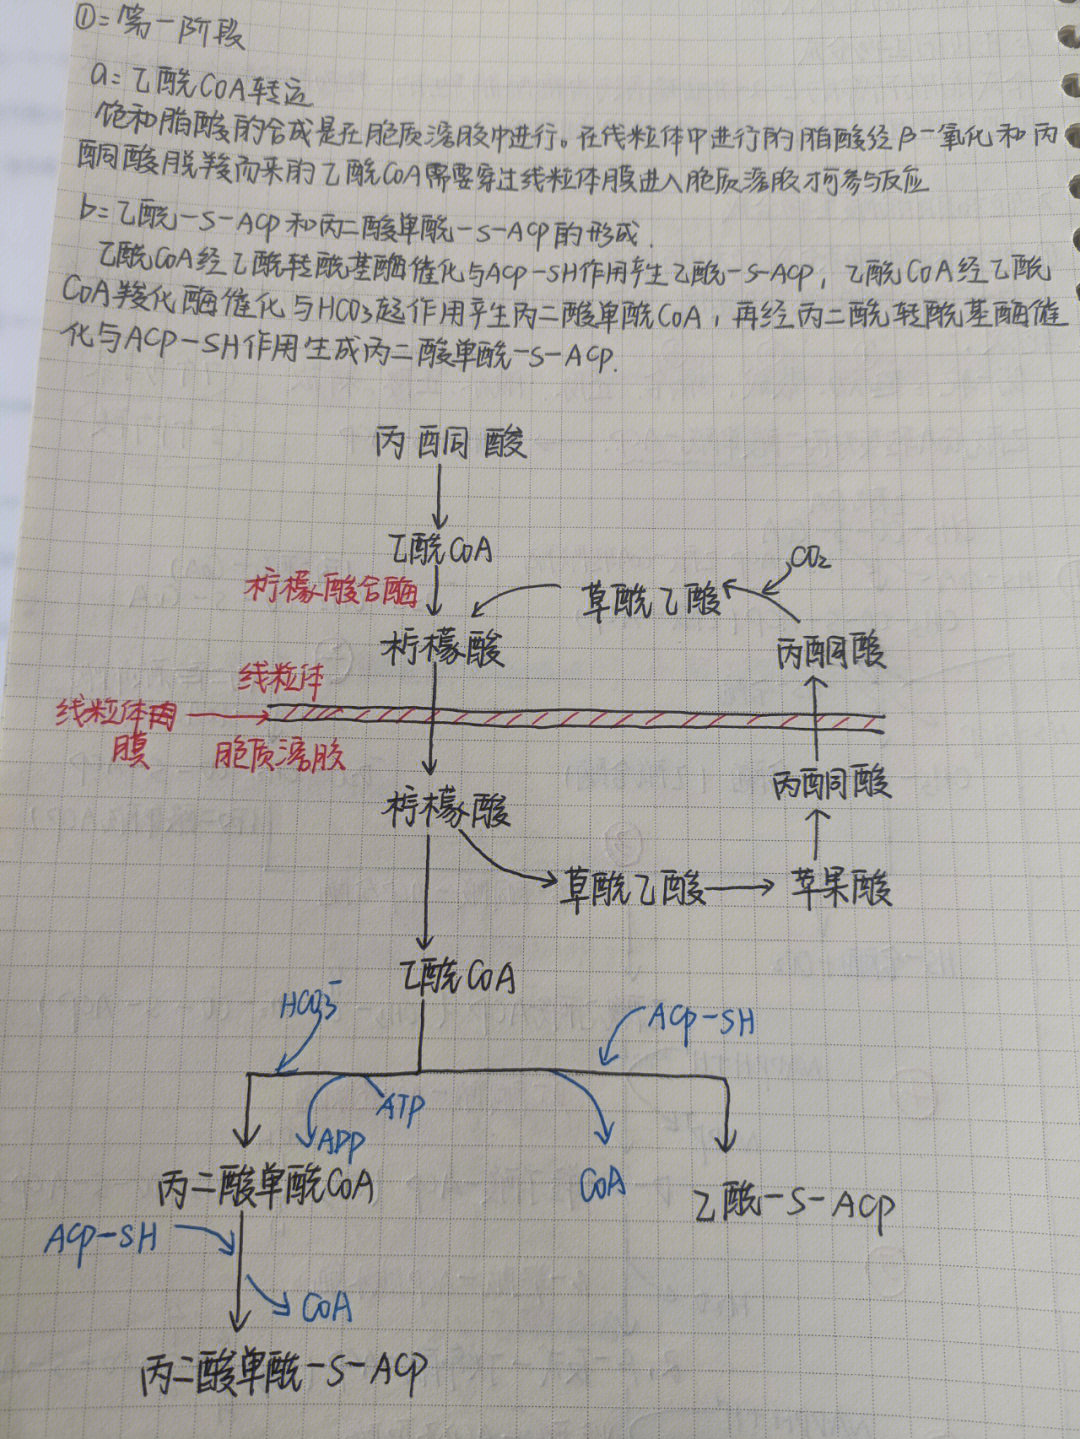 ①=第一阶段
a=乙酰CoA转运
饱和脂酸的合成是在胞质溶胶中进行。在线粒体中进行的脂酸经β-氧化和丙
酮酸脱羧而来的乙酰CoA需要穿过线粒体膜进入胞质溶胶才可参与反应
b=乙酰-S-ACP和丙二酸单酰-S-ACP的形成.
乙酰CoA经乙酰转酰基酶催化与ACP-SH作用产生乙酰-S-ACP, 乙酰CoA经乙酰
CoA羧化酶催化与HCO3起作用产生丙二酸单酰CoA, 再经丙二酰转酰基酶催
化与ACP-SH作用生成丙二酸单酰-S-ACP.
丙酮酸
乙酰CoA
CO2
柠檬酸合酶
草酰乙酸
柠檬酸
丙酮酸
线粒体
线粒体内
膜
胞质溶胶
丙酮酸
柠檬酸
草酰乙酸
苹果酸
乙酰CoA
HCO3-
ACP-SH
ATP
ADP
丙二酸单酰CoA
CoA
乙酰-S-ACP
ACP-SH
CoA
丙二酸单酰-S-ACP